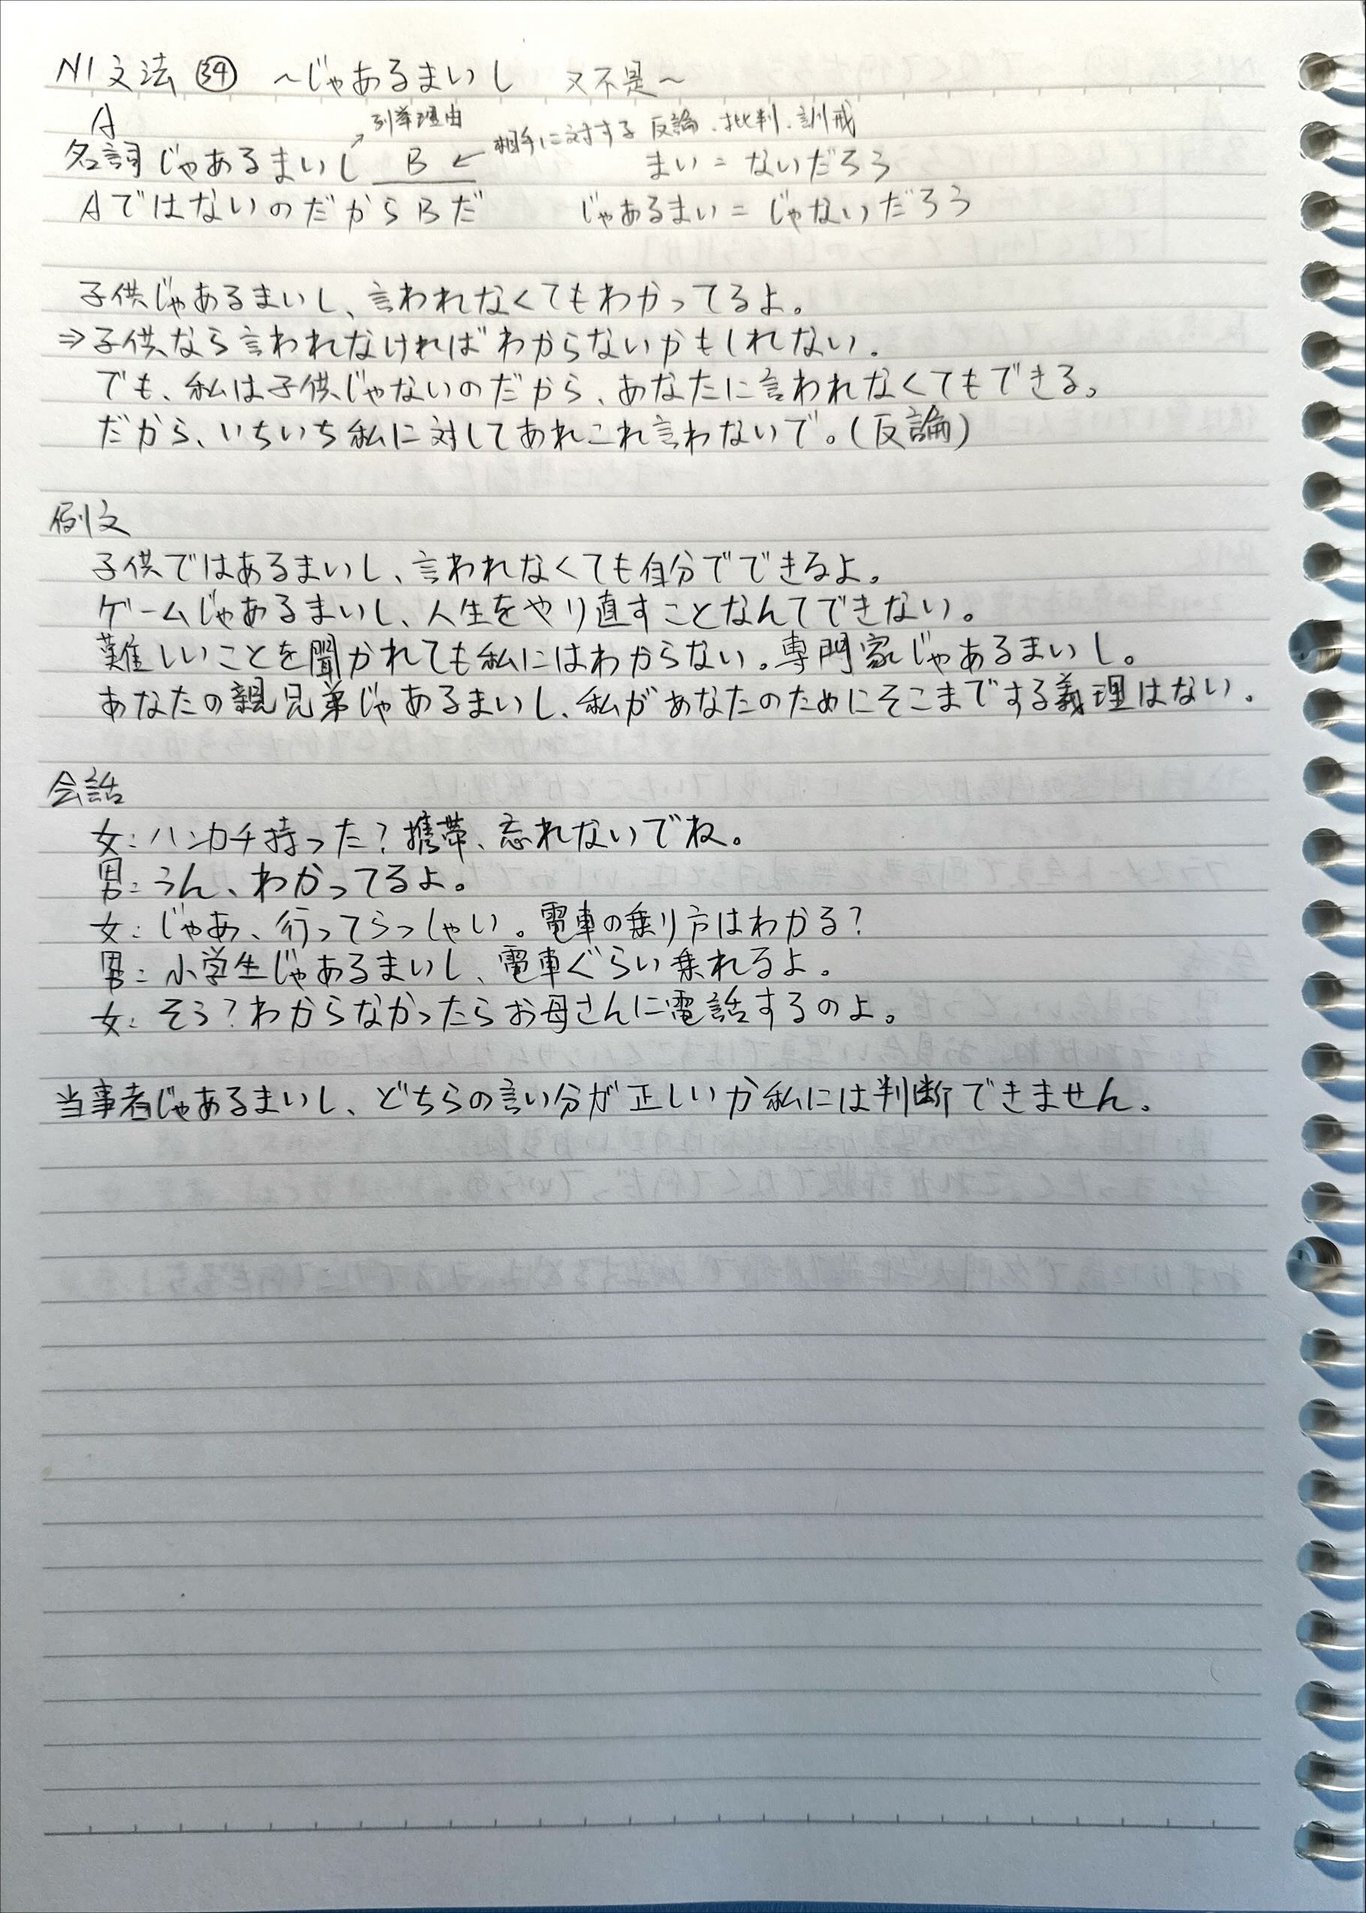 N1文法 ㉞ ～じゃあるまいし 又不是～
A 列挙理由 相手に対する 反論、批判、訓戒
名詞じゃあるまいし B まい＝ないだろう
AではないのだからBだ じゃあるまい＝じゃないだろう
子供じゃあるまいし、言われなくてもわかってるよ。
⇒子供なら言われなければわからないかもしれない。
でも、私は子供じゃないのだから、あなたに言われなくてもできる。
だから、いちいち私に対してあれこれ言わないで。(反論)
例文
子供ではあるまいし、言われなくても自分でできるよ。
ゲームじゃあるまいし、人生をやり直すことなんてできない。
難しいことを聞かれても私にはわからない。専門家じゃあるまいし。
あなたの親兄弟じゃあるまいし、私があなたのためにそこまでする義理はない。
会話
女：ハンカチ持った？携帯、忘れないでね。
男：うん、わかってるよ。
女：じゃあ、行ってらっしゃい。電車の乗り方はわかる？
男：小学生じゃあるまいし、電車ぐらい乗れるよ。
女：そう？わからなかったらお母さんに電話するのよ。
当事者じゃあるまいし、どちらの言い分が正しいか私には判断できません。